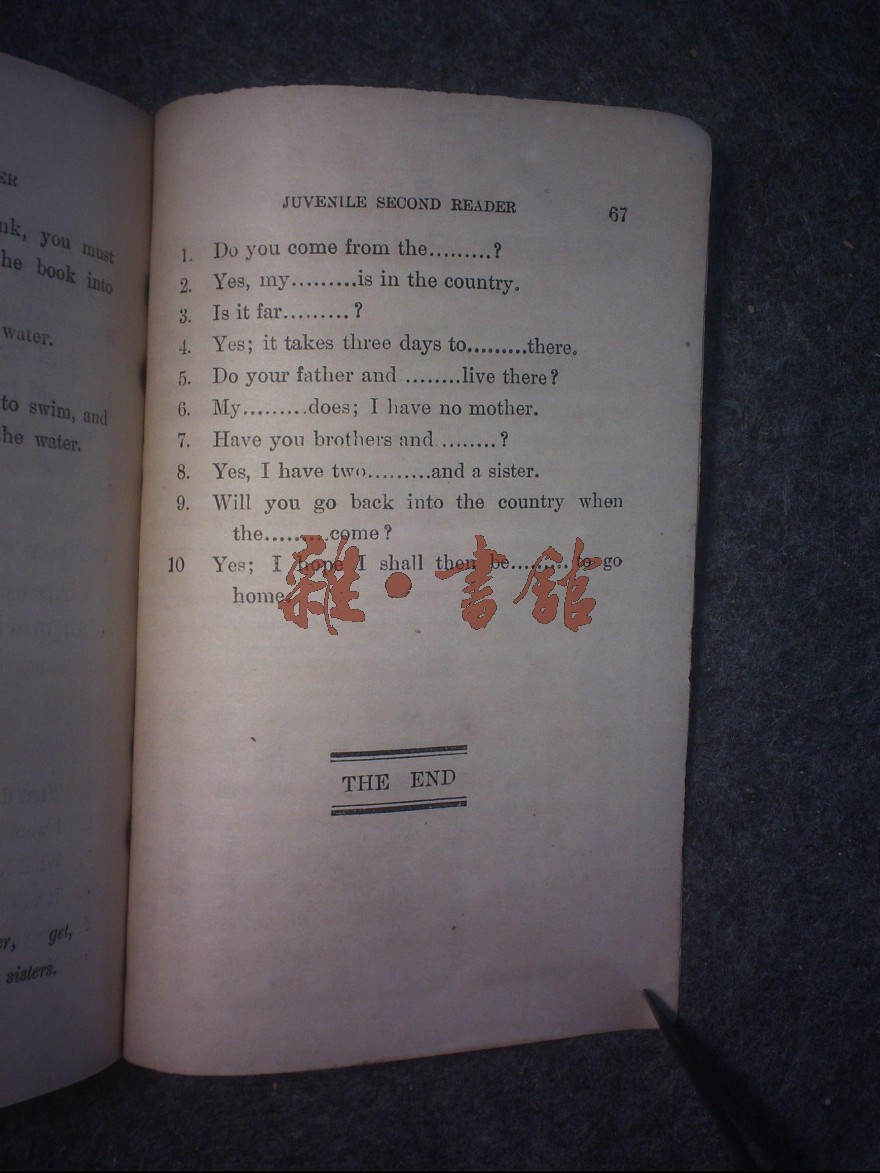 ER
nk, you must
he book into
water.
to swim, and
he water.
er, get,
sisters.
JUVENILE SECOND READER 67
1. Do you come from the.........?
2. Yes, my.........is in the country.
3. Is it far.........?
4. Yes; it takes three days to.........there.
5. Do your father and ........live there?
6. My.........does; I have no mother.
7. Have you brothers and.........?
8. Yes, I have two.........and a sister.
9. Will you go back into the country when
the.........come?
10 Yes; I hope I shall then be.........to go
home.
雜·書館
THE END